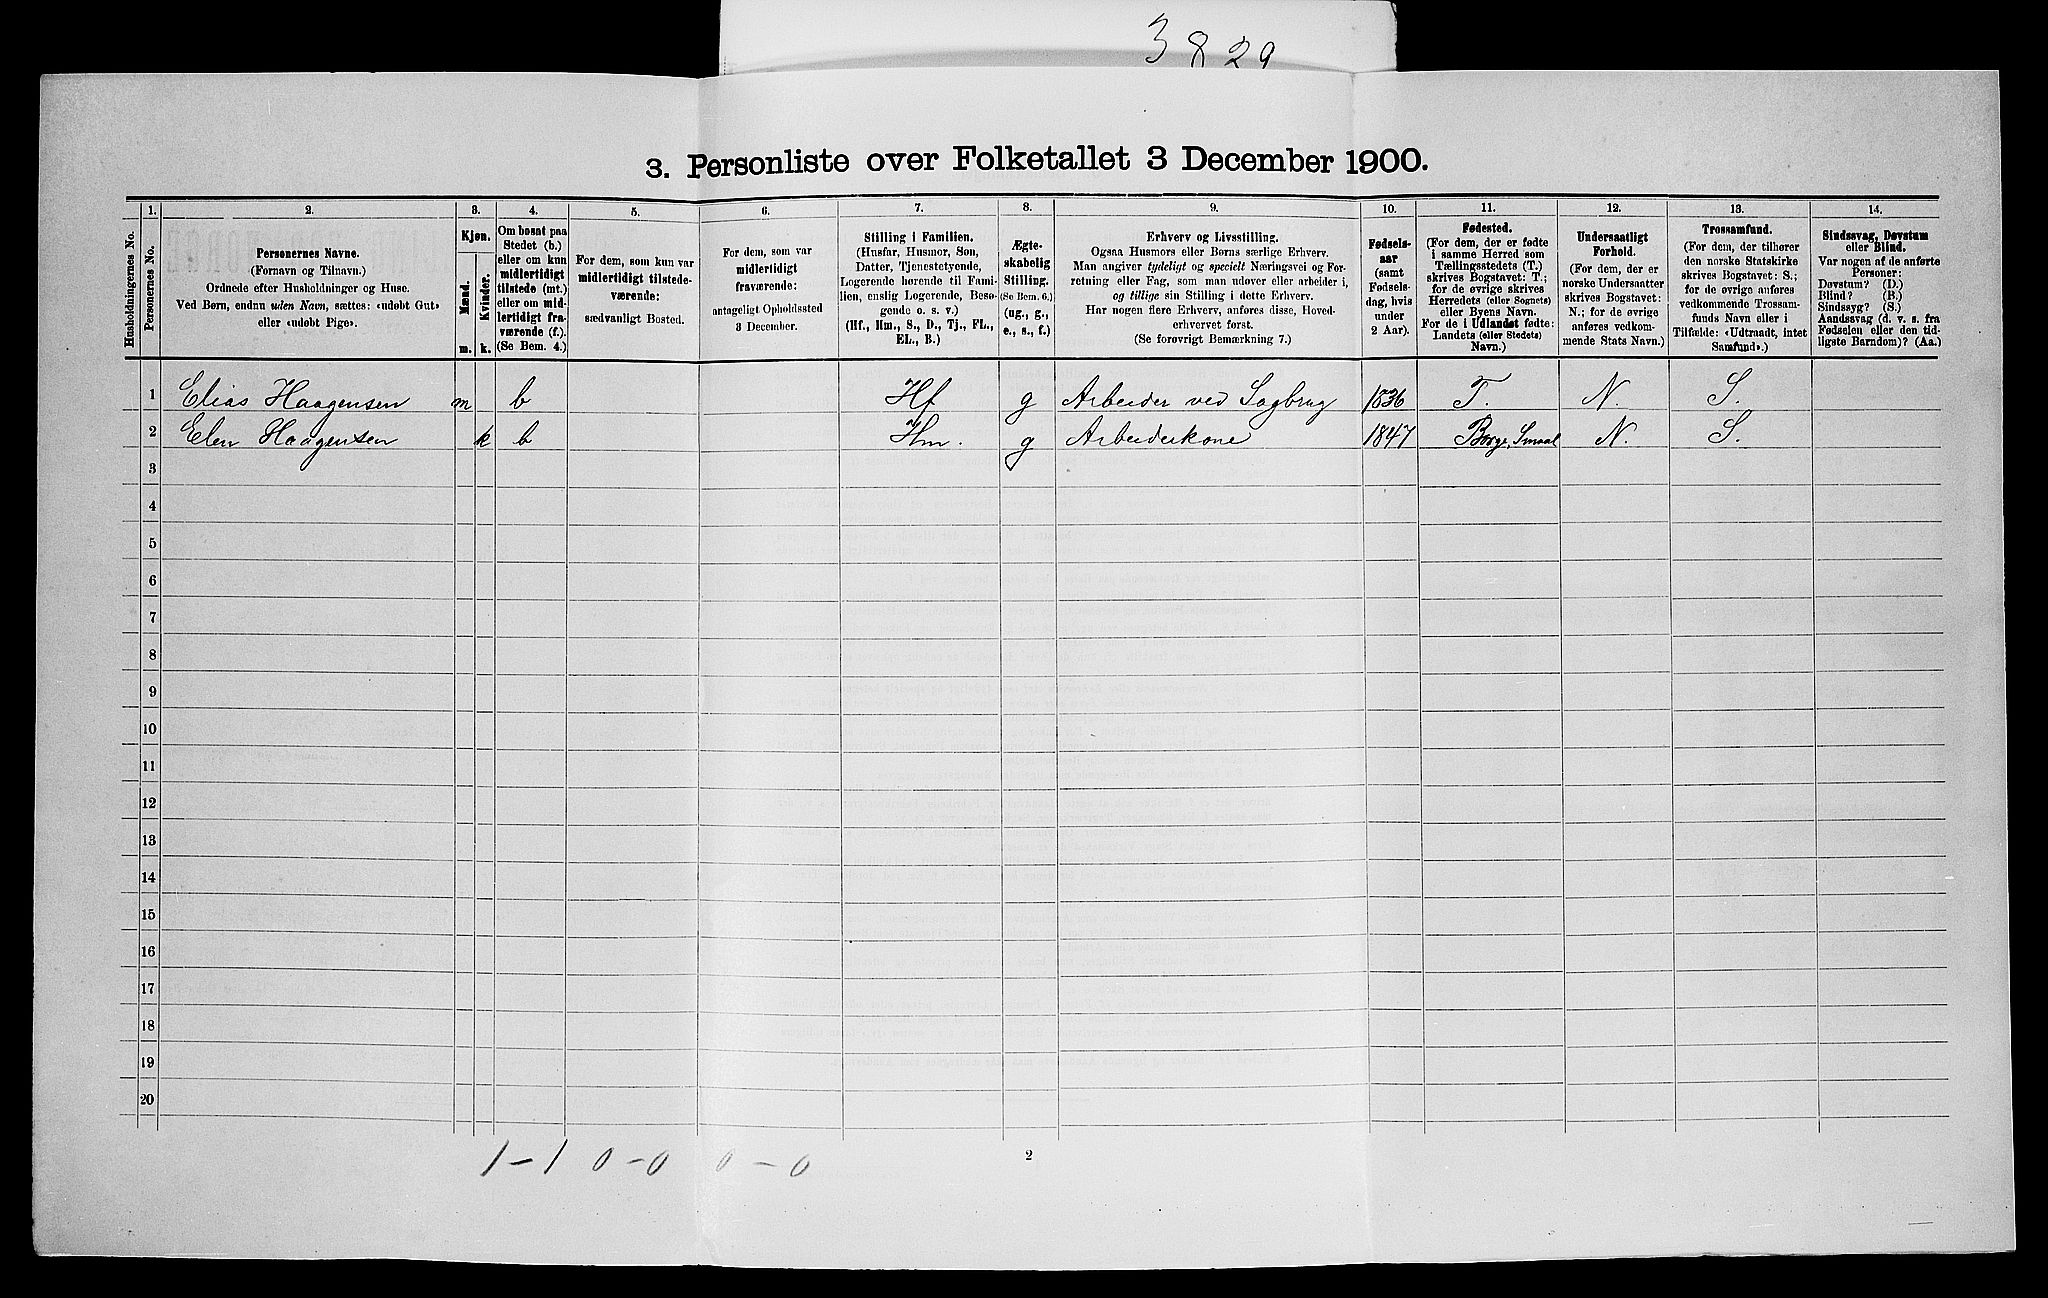 3829
3. Personliste over Folketallet 3 December 1900.
Husholdningernes No.
1.
Personernes No.
2.
Personernes Navne.
(Fornavn og Tilnavn.)
Ordnede efter Husholdninger og Huse.
Ved Børn, endnu uden Navn, sættes: «udøbt Gut»
eller «udøbt Pige».
3.
Kjøn.
Mænd.
Kvinder.
m. k.
4.
Om bosat paa
Stedet (b.)
eller om kun
midlertidigt
tilstede (mt.)
eller om mid-
lertidigt fra-
værende (f.).
(Se Bem. 4.)
5.
For dem, som kun var
midlertidigt tilstede-
værende:
sædvanligt Bosted.
6.
For dem, som var
midlertidigt
fraværende:
antageligt Opholdssted
3 December.
7.
Stilling i Familien.
(Husfar, Husmor, Søn,
Datter, Tjenestetyende,
Logerende hørende til Fami-
lien, enslig Logerende, Besø-
gende o. s. v.)
(Hf., Hm., S., D., Tj., FL.,
EL., B.)
8.
Ægte-
skabelig
Stilling.
(Se Bem. 6.)
(ug., g.,
e., s., f.)
9.
Erhverv og Livsstilling.
Ogsaa Husmors eller Børns særlige Erhverv.
Man angiver tydeligt og specielt Næringsvei og For-
retning eller Fag, som man udøver eller arbeider i,
og tillige sin Stilling i dette Erhverv.
Har nogen flere Erhverv, anføres disse, Hoved-
erhvervet først.
(Se forøvrigt Bemærkning 7.)
10.
Fødsels-
aar
(samt
Fødsels-
dag, hvis
under
2 Aar).
11.
Fødested.
(For dem, der er fødte
i samme Herred som
Tællingsstedets (T.)
skrives Bogstavet: T.;
for de øvrige skrives
Herredets (eller Sognets)
eller Byens Navn.
For de i Udlandet fødte:
Landets (eller Stedets)
Navn.)
12.
Undersaatligt
Forhold.
(For dem, der er
norske Undersaatter
skrives Bogstavet:
N.; for de øvrige
anføres vedkom-
mende Stats Navn.)
13.
Trossamfund.
(For dem, der tilhører
den norske Statskirke
skrives Bogstavet: S.;
for de øvrige anføres
vedkommende Trossam-
funds Navn eller i
Tilfælde: «Udtraadt, intet
Samfund».)
14.
Sindssvag, Døvstum
eller Blind.
Var nogen af de anførte
Personer:
Døvstum? (D.)
Blind? (B.)
Sindssyg? (S.)
Aandssvag (d. v. s. fra
Fødselen eller den tid-
ligste Barndom)? (Aa.)
1 Elias Haagensen m b Hf g Arbeider ved Sagbrug 1836 T. N. S.
2 Elen Haagensen k b Hm. g Arbeiderkone 1847 Borge, Smaal N. S.
3
4
5
6
7
8
9
10
11
12
13
14
15
16
17
18
19
20
1-1 0-0 0-0
2